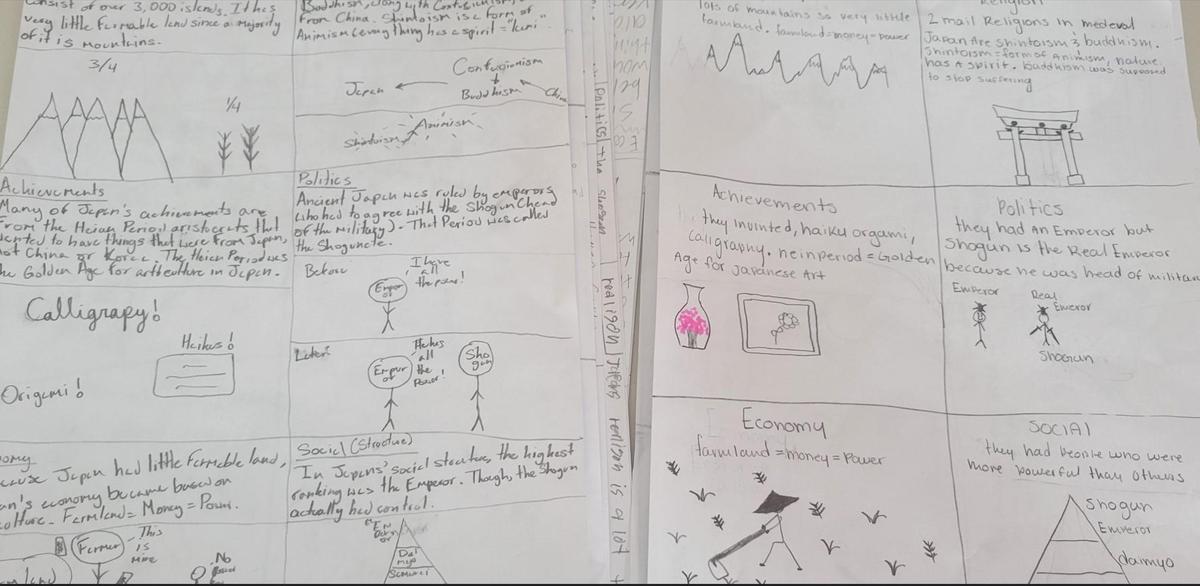 consist of over 3,000 islands. It has
very little Farmable land since a majority
of it is mountains.
3/4
1/4
Buddhism, along with Confucianism,
From China. Shintoism is a form of
Animism (everything has a spirit = "kami".
Confugionism
Japan
Buddhism
China
Shintoism
Animism
Achievements
Many of Japan's achievements are
From the Heian Period aristocrats that
wanted to have things that were From Japan,
not China or Korea. The Heian Period was
the Golden Age for art&culture in Japan.
Calligrapy!
Haikus!
Origami!
Politics
Ancient Japan was ruled by emperors
who had to agree with the Shogun (head
of the military). That Period was called
the Shogunate.
Before
I have
all
the power!
Emper
or
Later
He has
all
the
Power!
Emper
or
Sho
gun
onomy
Because Japan had little Farmable land,
an's economy became based on
culture. Farmland = Money = Power.
Farmer
This
is
mine
No
land
Social (Structure)
In Japans' social structure, the highest
ranking was the Emperor. Though, the Shogun
actually had control.
Dai
myo
Samurai
Politics
the
religon
Japans
religion is a lot
lots of mountains so very little
farmland. farmland=money=power
Religion
2 mail Religions in medeval
Japan Are Shintoism & buddhism.
Shintoism=form of Animism, nature
has a spirit. buddhism was suposed
to stop suffering
Achievements
they invinted, haiku orgami,
caligraphy. neinperiod = Golden
Age for Japanese Art
Politics
they had an Emperor but
Shogun is the Real Emperor
because he was head of militar
Emperor
Real
Emeror
Shogun
Economy
farmland = money = Power
SOCIAl
they had people who were
more powerful than others
Shogun
Emperor
daimyo